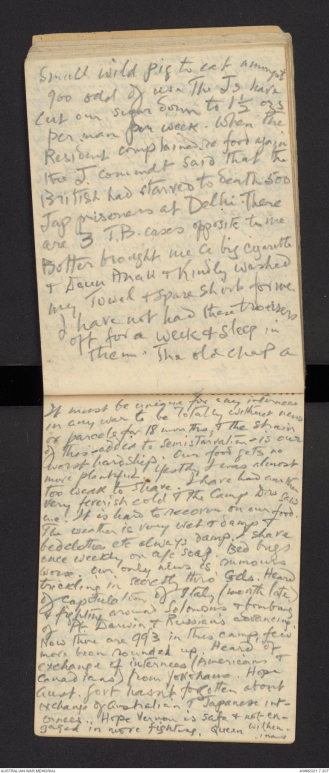 Small wild pig to eat amongst
900 odd of us. The Js have
cut our sugar down to 1½ ozs
per man per week. When the
Resident complained re food again
the J. comdt said that the
British had starved to death 500
Jap prisoners at Delhi. There
are 3 T.B. cases opposite to me
Botter brought me a big cigarette
& Daun & kindly washed
my Towel & spare Shorts for me
I have not had these trousers
off for a week & sleep in
them. The old chap a
It must be unique for any internees
in any war to be totally without news
or parcels for 18 months, & the strain
of this added to semistarvation is our
worst hardship. Our food gets no
more plentiful. Yestdy I was almost
too weak to shave. I have had another
very feverish cold & the Camp Drs
me. It is hard to recover on our food.
The weather is very wet & damp &
bedclothes etc always damp. I shave
once weekly on a/c soap. Bed bugs
worse. Our only news is rumours
trickling in secretly thro Gds. Heard
of Capitulation of Italy (month late)
& fighting around Solomons & bombing
of Pt Darwin & Russians advancing.
Now there are 993 in this camp, few
more been rounded up. Heard of
exchange of internees (Americans &
Canadians) from Yokohama. Hope
Aust. Govt hasn't forgotten about
exchange of Australian & Japanese int-
ernees. Hope Vernon is safe & not en-
gaged in more fighting. Queen Wilhel-
mina's
AUSTRALIAN WAR MEMORIAL